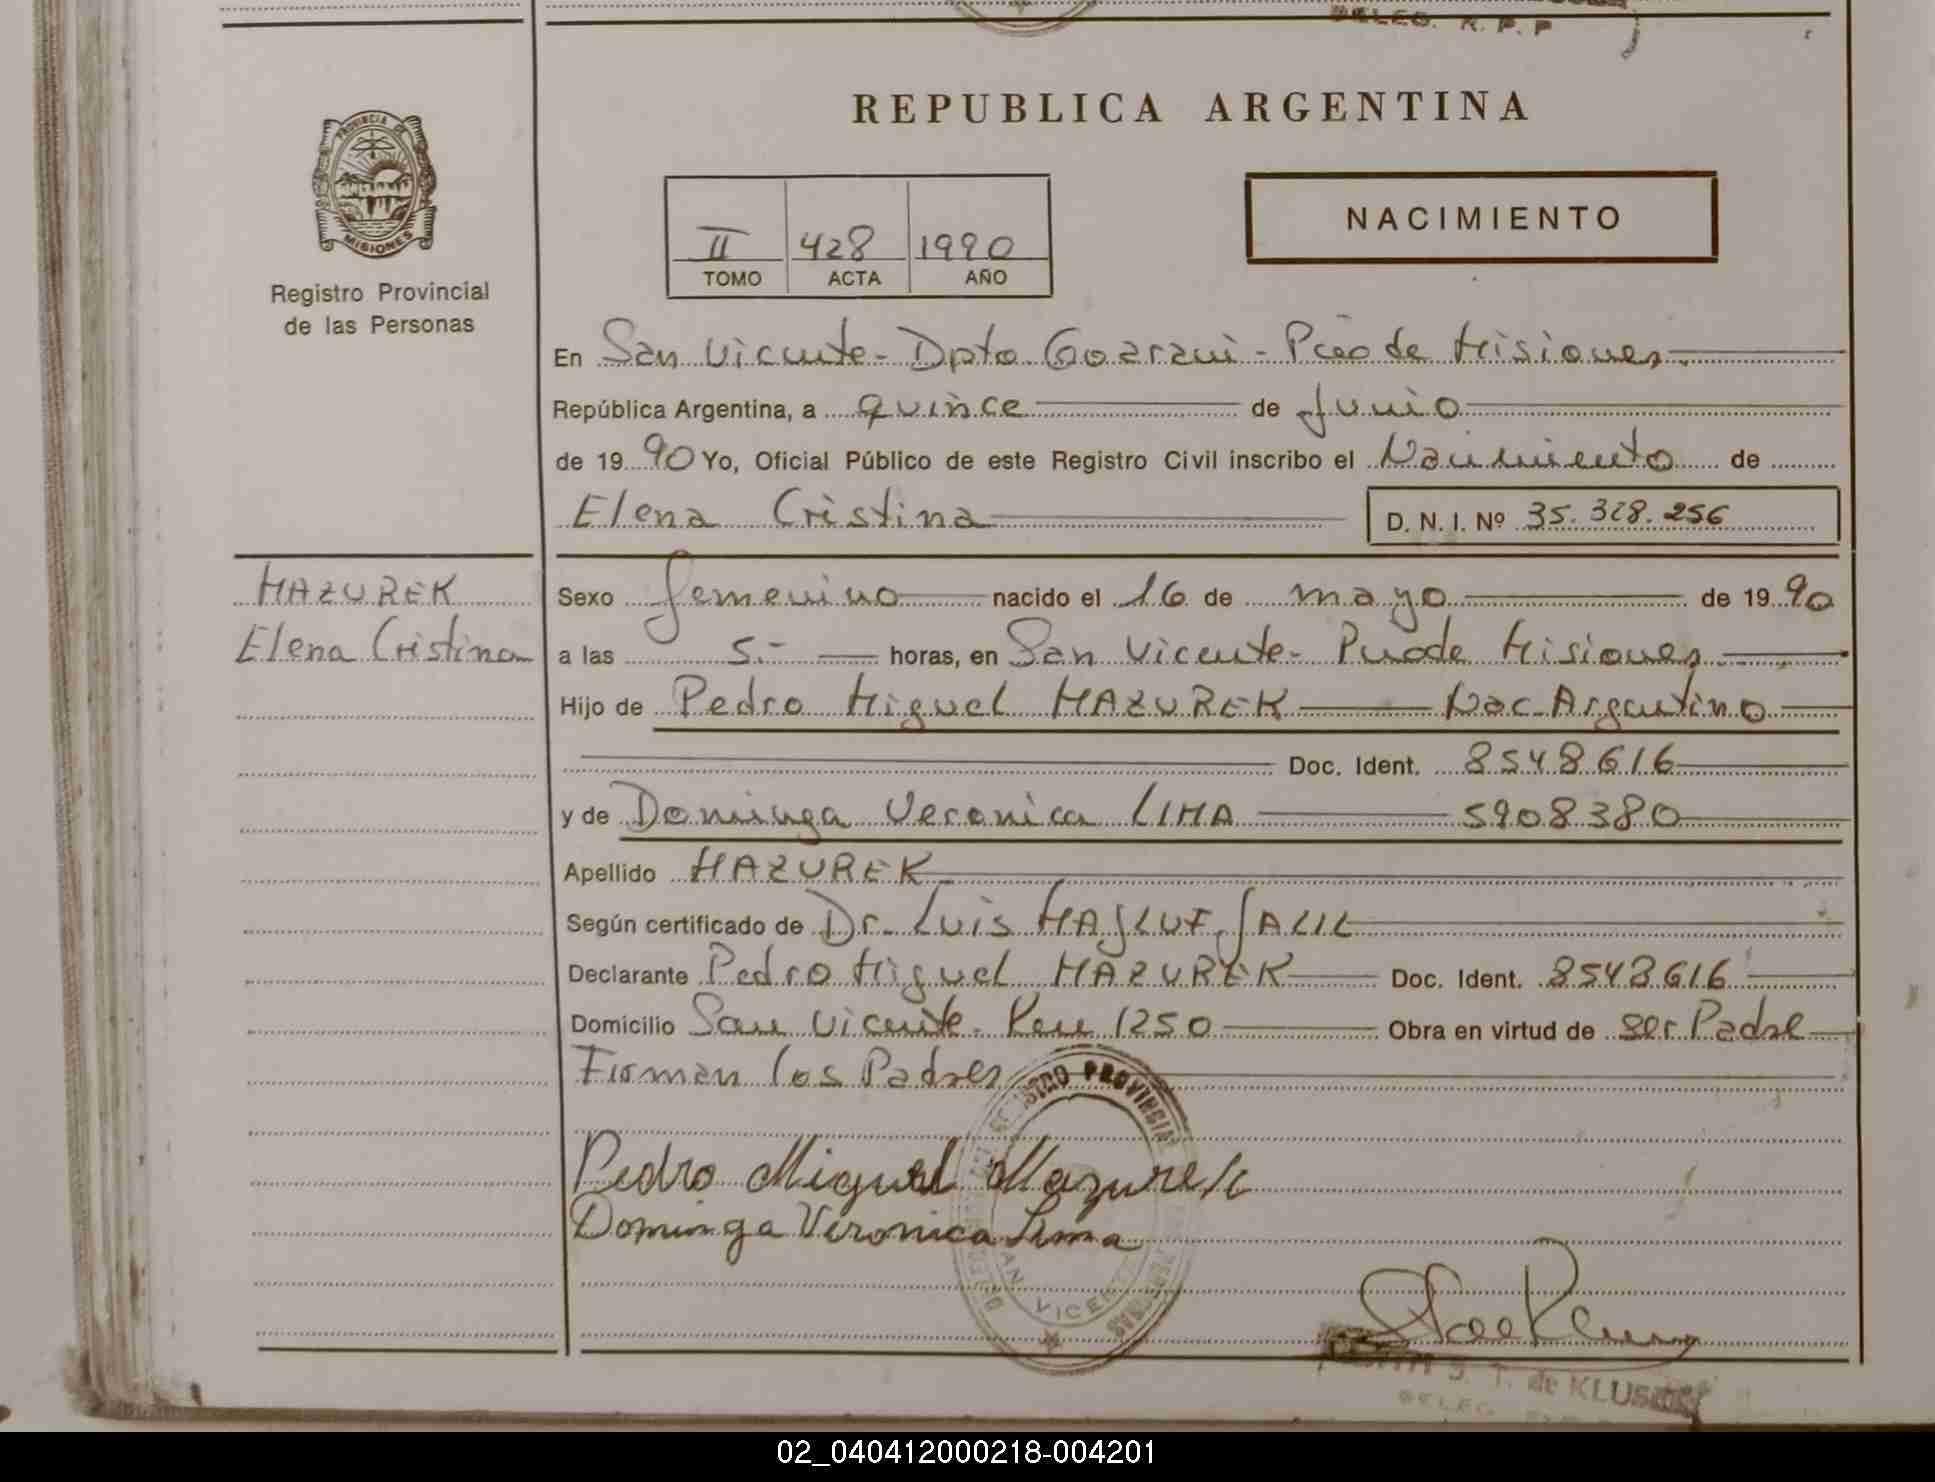 DELEG. R. P. P
REPUBLICA ARGENTINA
PROVINCIA DE
MISIONES
Registro Provincial
de las Personas
II 428 1990
TOMO ACTA AÑO
NACIMIENTO
En San Vicente - Dpto Guarani - Pcia de Misiones
República Argentina, a quince de Junio
de 1990 Yo, Oficial Público de este Registro Civil inscribo el Nacimiento de
Elena Cristina
D. N. I. Nº 35.328.256
MAZUREK
Elena Cristina
Sexo femenino nacido el 16 de mayo de 1990
a las 5.- horas, en San Vicente - Pcia de Misiones
Hijo de Pedro Miguel MAZUREK Nac. Argentino
Doc. Ident. 8548616
y de Dominga Veronica LIMA 5908380
Apellido MAZUREK
Según certificado de Dr. Luis JALIL
Declarante Pedro Miguel MAZUREK Doc. Ident. 8548616
Domicilio San Vicente 1250 Obra en virtud de ser Padre
Firman los Padres
REGISTRO PROVINCIAL
Pedro Miguel Mazurek
Dominga Veronica Lima
SAN VICENTE
S. T. de
DELEG.
02_040412000218-004201